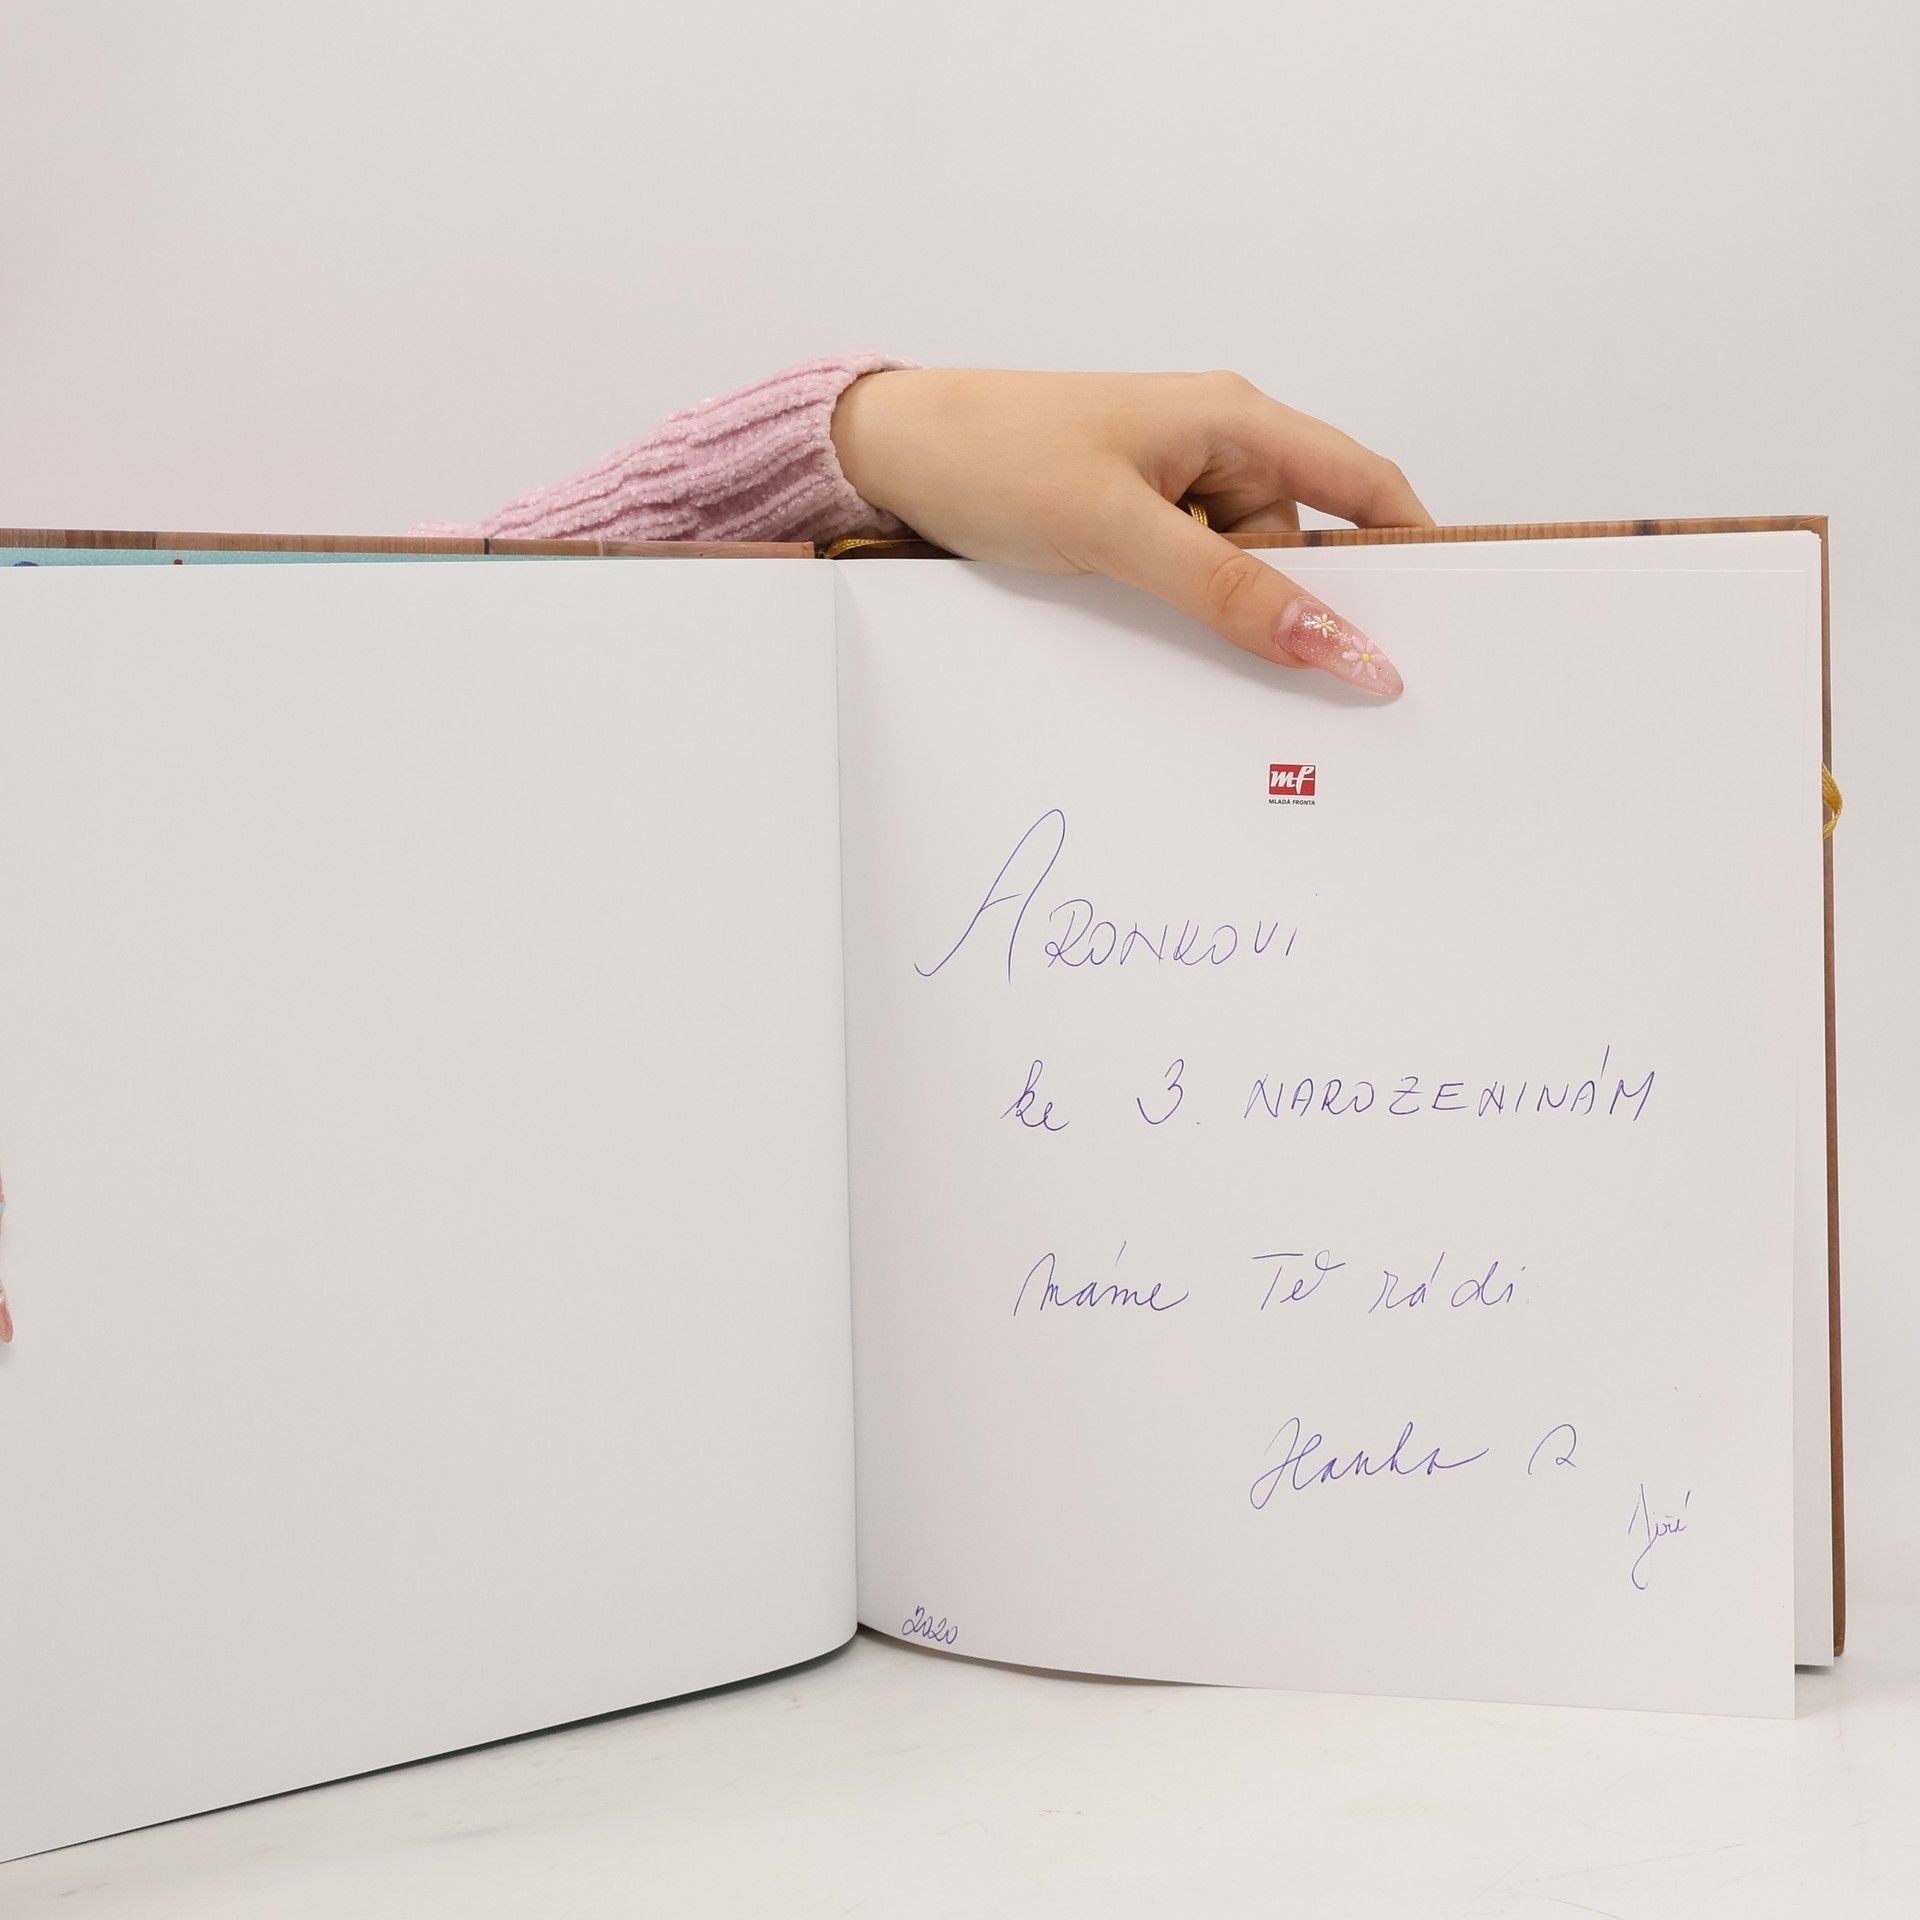 mf
MLADÁ FRONTA
ARONKOVI
ke 3. NAROZENINÁM
máme Tě rádi
Hanka a
Jiří
2020